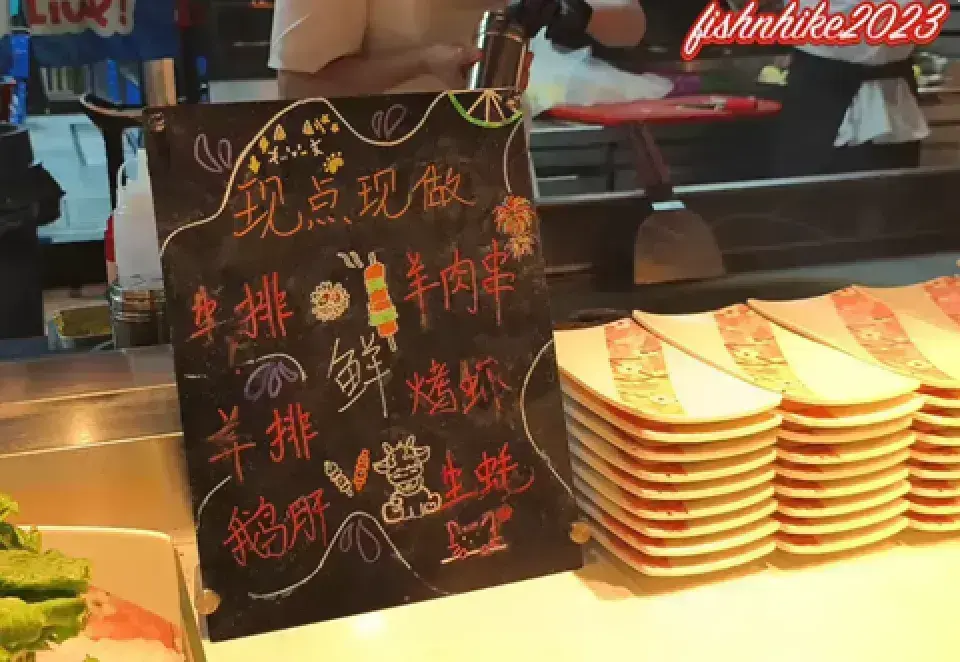 LIVE!
fishnhike2023
现点现做
牛排
羊肉串
鲜
羊排
烤虾
鹅肝
生蚝